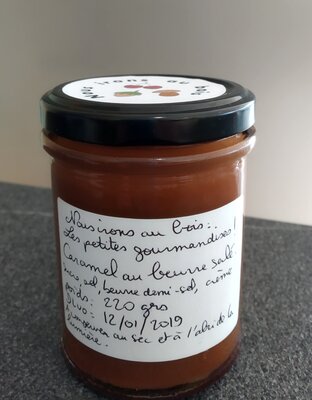 Nous irons au bois
Nous irons au bois :
Les petites gourmandises !
Caramel au beurre salé
sucre sel, beurre demi-sel, crème
poids : 220 grs
DLUO : 12/01/2019
conserver au sec et à l'abri de la
lumière.